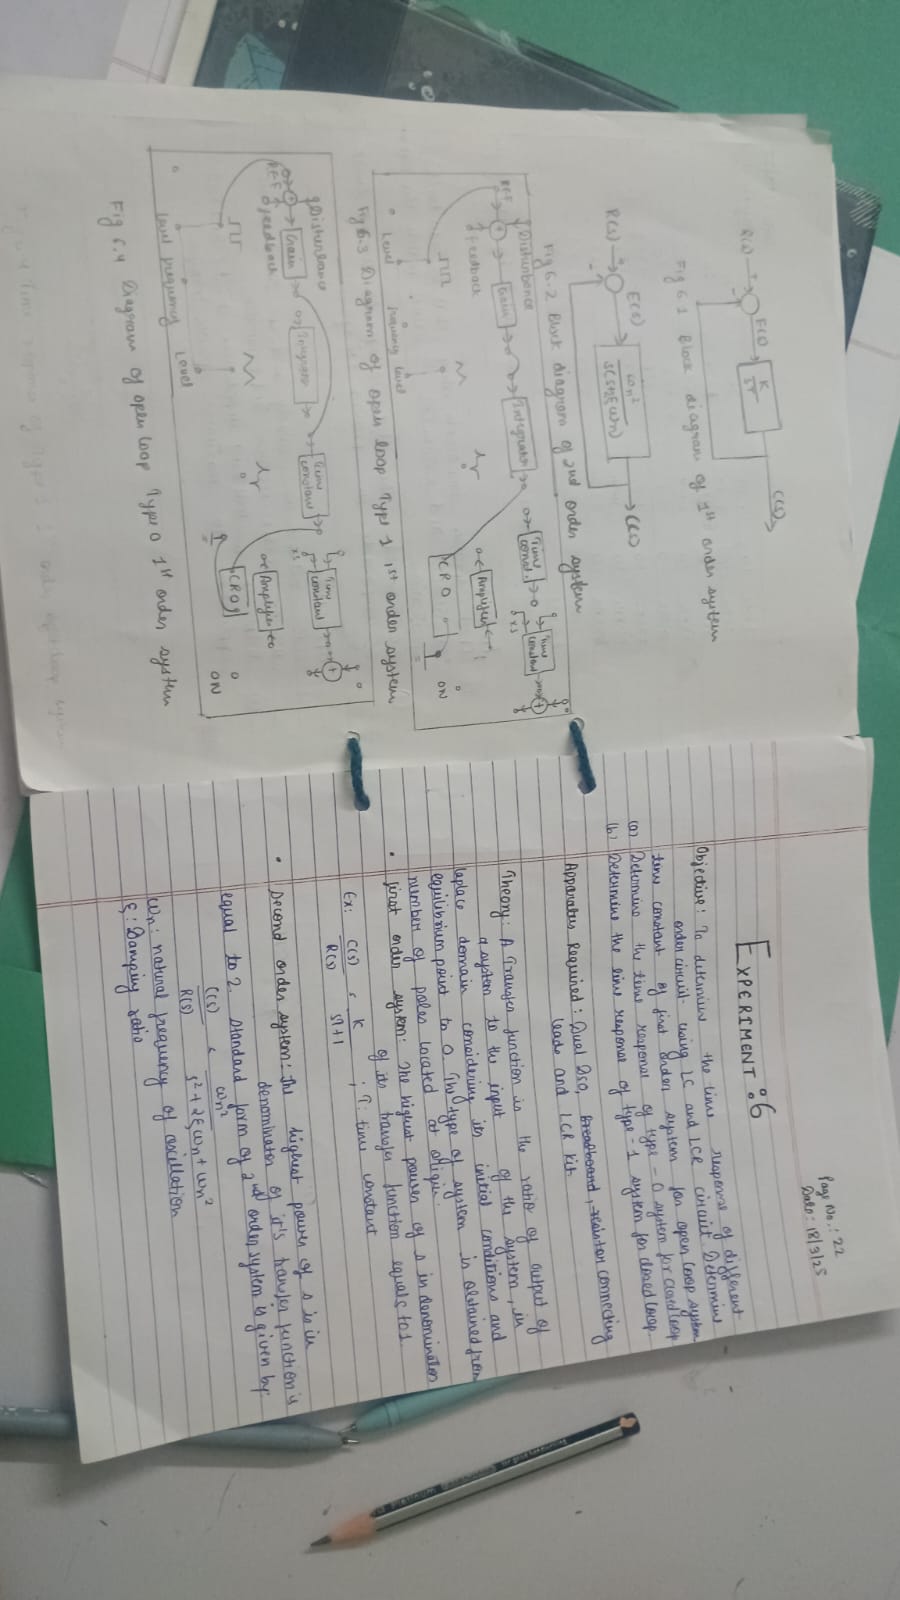 R(s) + - E(s) K/ST C(s)
Fig 6.1 Block diagram of 1st order system
R(s) + - E(s) ωn²/s(s+2ξωn) C(s)
Fig 6.2 Block diagram of 2nd order system
Disturbance
REF + Gain Integrator Time const. Time constant +
feedback
XS
Amplifier
CRO
ON
Level frequency Level
Fig 6.3 Diagram of open loop Type 1 1st order system
Disturbance
REF Gain Integrator Time constant Time constant +
feedback
XS
Amplifier
CRO
ON
Level frequency Level
Fig 6.4 Diagram of open loop Type 0 1st order system
Page No.: 22
Date: 18/3/25
EXPERIMENT :6
Objective: To determine the time response of different
order circuit using LC and LCR circuit. Determine
time constant of first order system for open loop system
(a) Determine the time response of type - 0 system for closed loop
(b) Determine the time response of type - 1 system for closed loop.
Apparatus Required: Dual DSO, Breadboard, resistor connecting
leads and LCR kit
Theory: A Transfer function is the ratio of output of
a system to the input of the system, in
laplace domain considering its initial conditions and
equilibrium point to 0. The type of system is obtained from
number of poles located at origin.
• first order system: The highest power of s in denominator
of its transfer function equals to 1.
Ex: C(s)/R(s) = K/sT+1 ; T: time constant
• Second order system: The highest power of s is in
denominator of it's transfer function is
equal to 2. Standard form of 2nd order system is given by
C(s)/R(s) = ωn²/s²+2ξωn+ωn²
ωn: natural frequency of oscillation
ξ: Damping ratio